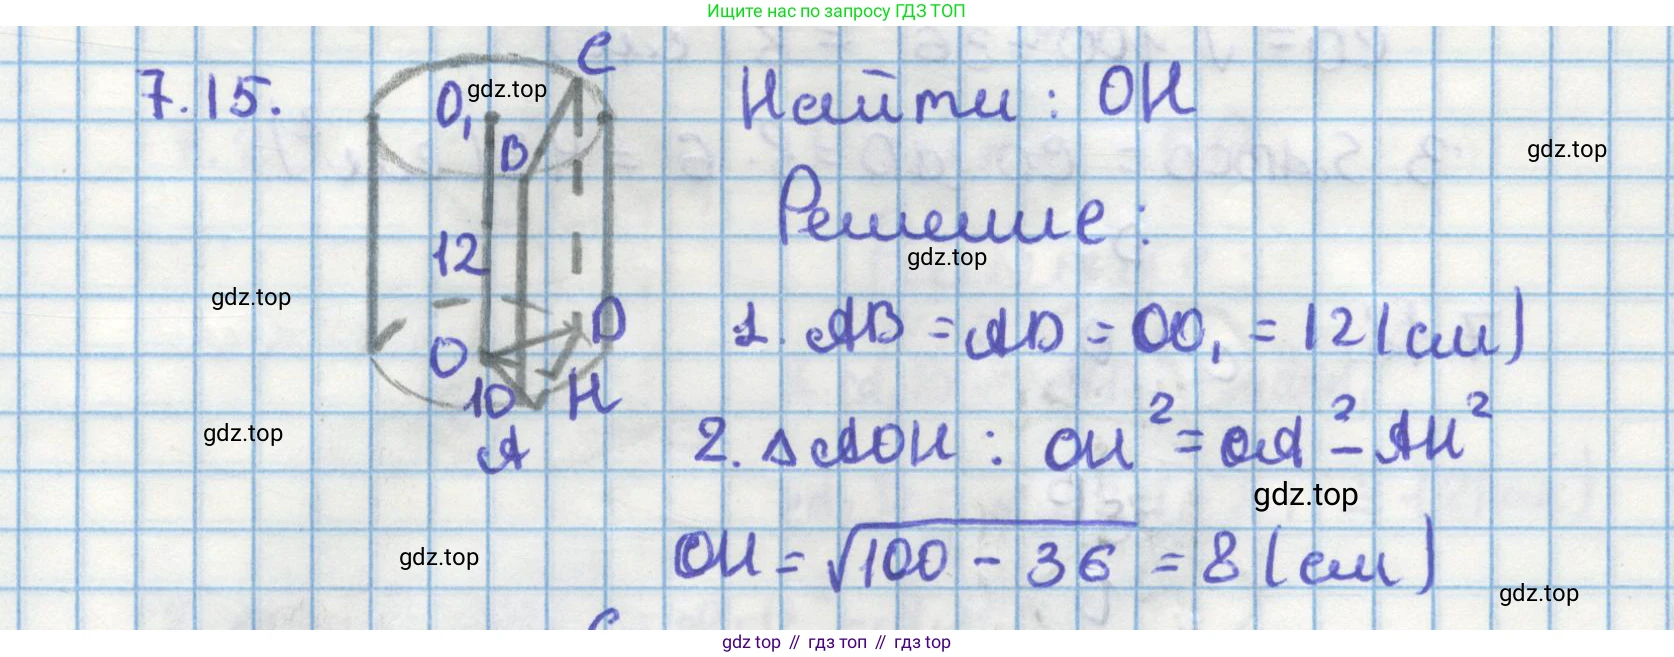 Ищите нас по запросу ГДЗ ТОП
7.15.
C
O₁
gdz.top
B
12
O
D
10
H
A
Найти: OH
gdz.top
Решение:
gdz.top
gdz.top
1. AB = AD = OO₁ = 12 (см)
2. Δ AOH: OH² = OA² - AH²
gdz.top
gdz.top
OH = √100 - 36 = 8 (см)
gdz.top
gdz.top
gdz.top // гдз топ // гдз top